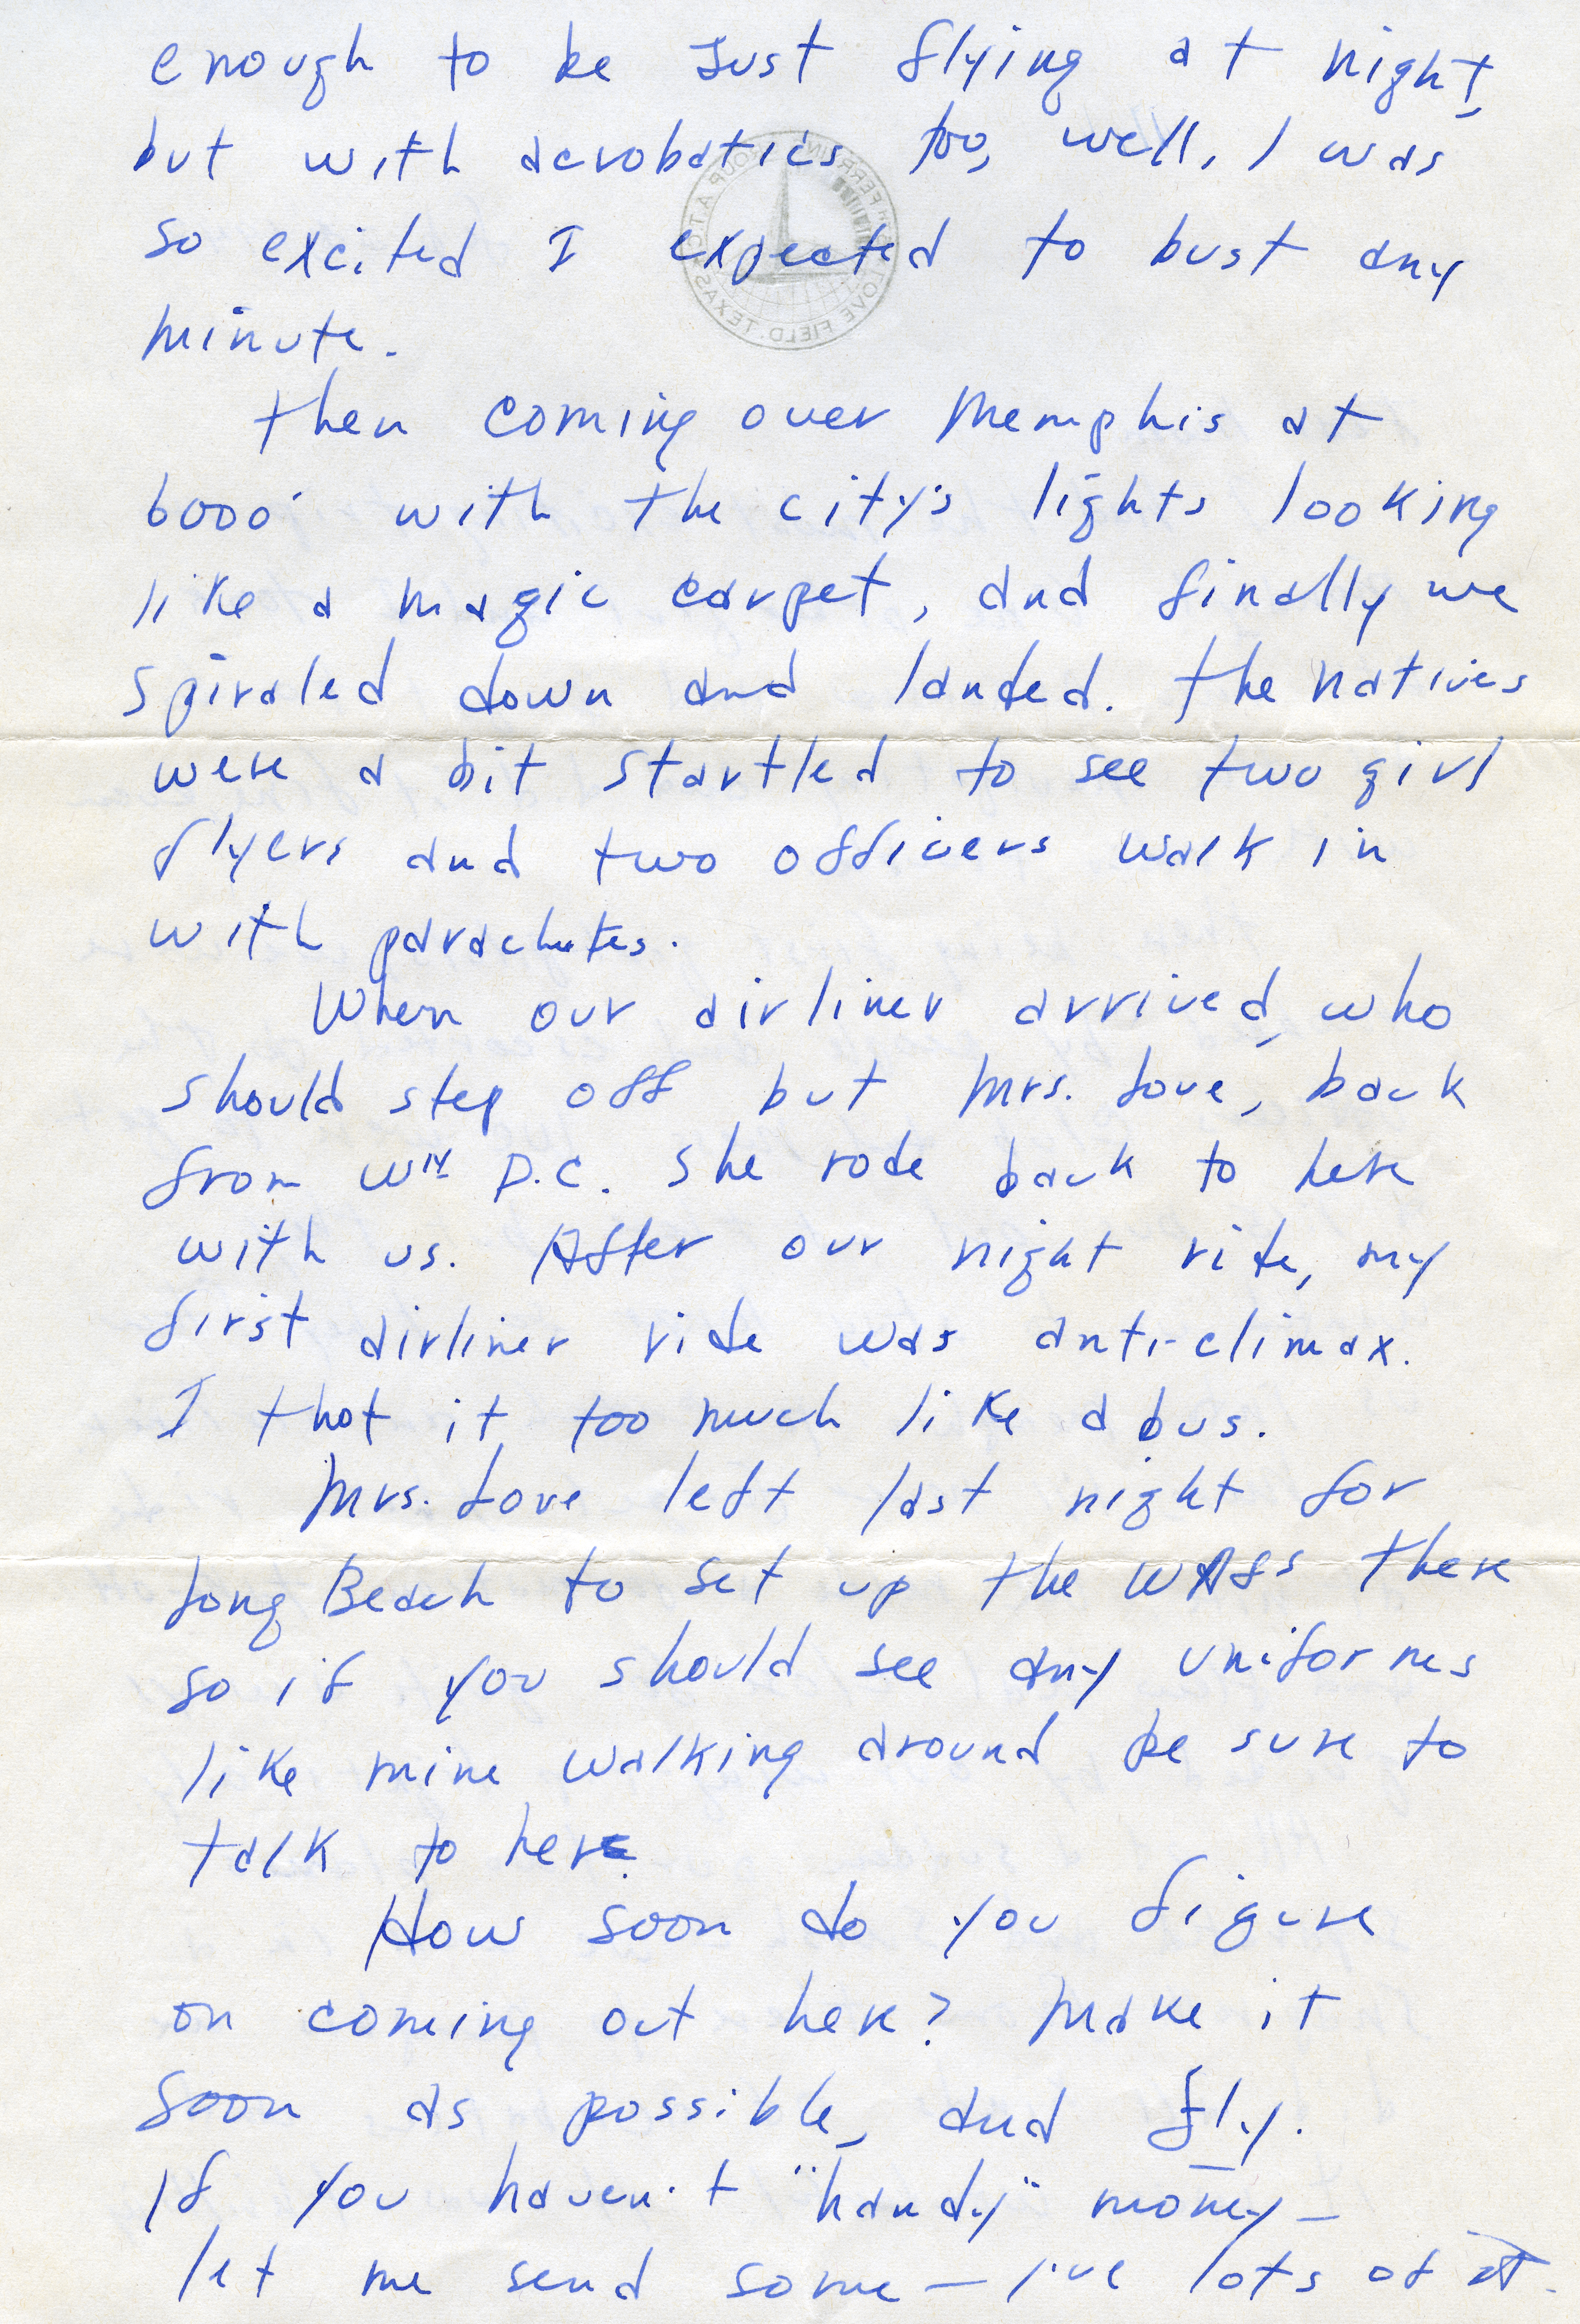 enough to be Just flying at night,
but with acrobatics too, well, I was
so excited I expected to bust any
minute.
Then coming over Memphis at
6000' with the city's lights looking
like a magic carpet, and finally we
spiraled down and landed. The natives
were a bit startled to see two girl
flyers and two officers walk in
with parachutes.
When our airliner arrived, who
should step off but Mrs. Love, back
from Wn D.C. She rode back to here
with us. After our night ride, my
first airliner ride was anti-climax.
I thot it too much like a bus.
Mrs. Love left last night for
Long Beach to set up the WAFS there
so if you should see any uniforms
like mine walking around be sure to
talk to her.
How soon do you figure
on coming out here? Make it
soon as possible, and fly.
If you haven't "handy" money—
let me send some — I've lots of it.
LOVE FIELD, TEXAS